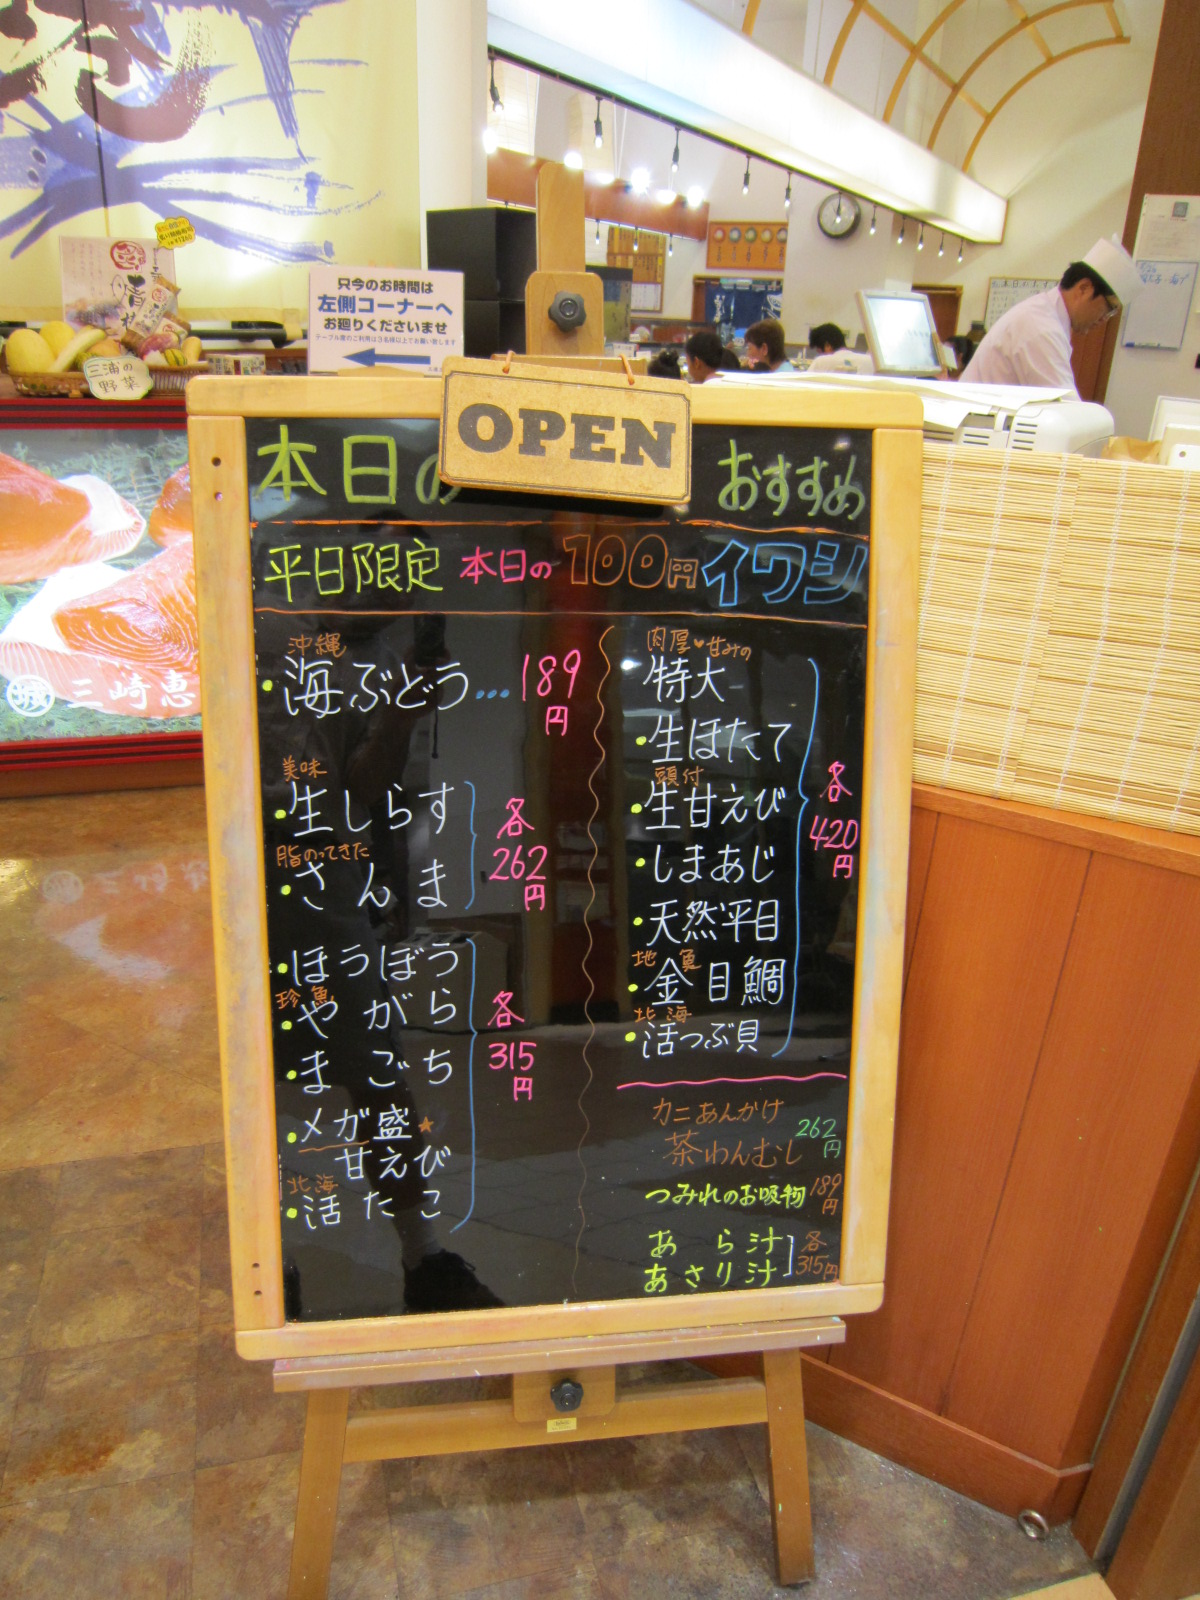 只今のお時間は
左側コーナーへ
お廻りくださいませ
テーブル席のご利用は3名様以上でお願い致します
三浦の
野菜
三崎恵
OPEN
本日の おすすめ
平日限定 本日の100円イワシ
沖縄
・海ぶどう…189円
美味
・生しらす
脂のってきた
・さんま
各262円
・ほうぼう
珍魚
・やがら
・まごち
・メガ盛★
甘えび
北海
・活たこ
各315円
肉厚♥甘みの
特大
・生ほたて
頭付
・生甘えび
・しまあじ
・天然平目
地魚
・金目鯛
北海
・活つぶ貝
各420円
カニあんかけ
茶わんむし 262円
つみれのお吸物 189円
あら汁
あさり汁
各315円